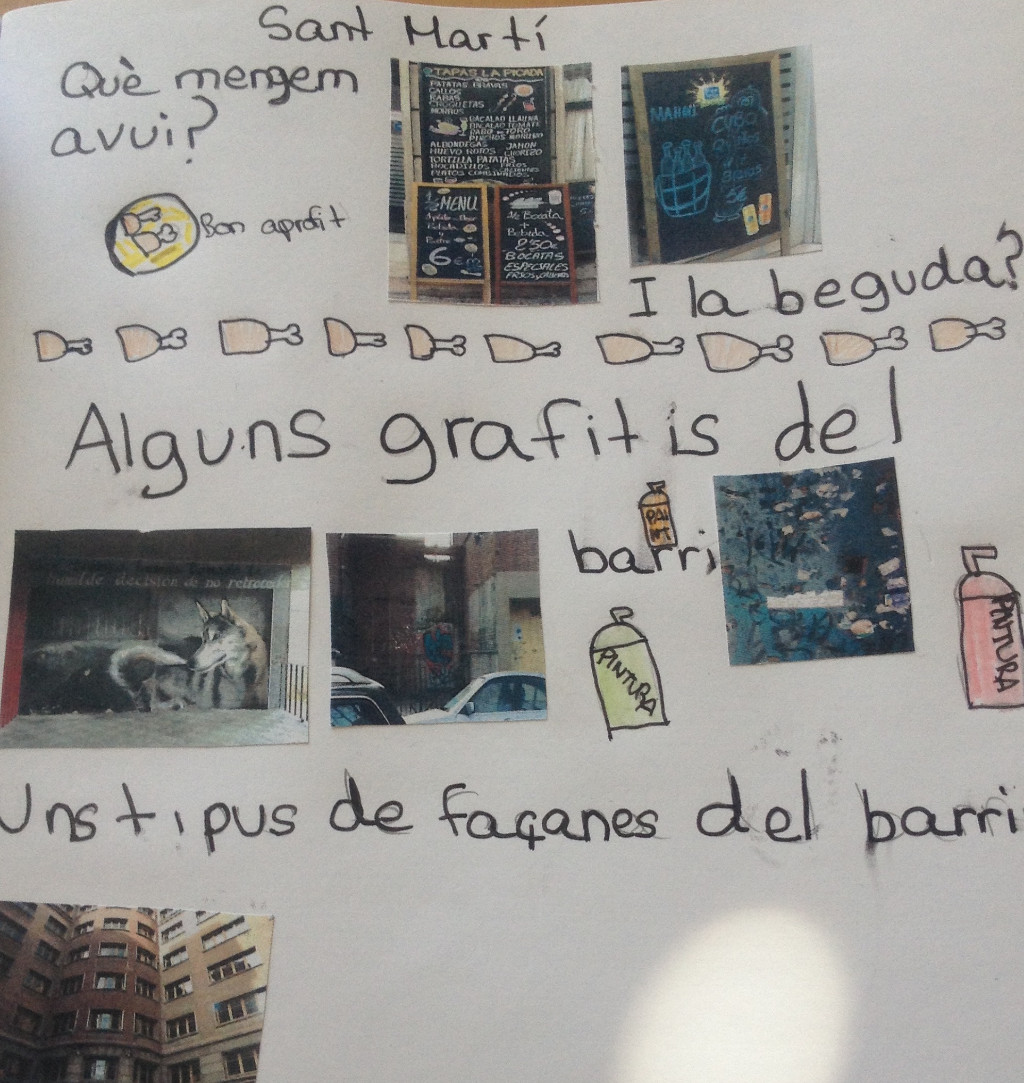 Sant Martí
Què mengem
avui?
Bon aprofit
TAPAS LA PICADA
PATATAS BRAVAS
CALLOS
RABAS
CROQUETAS
MORROS
BACALAO LLAUNA
BACALAO TOMATE
RABO DE TORO
PINCHOS MORUNO
ALBONDEGAS JAMON
HUEVO ROTOS CHORIZO
TORTILLA PATATAS
BOCADILLOS FRIOS
CALIENTES
PLATOS COMBINADOS
1/2 MENU
Bebida
Postre
6€
1/2 Bocata
+
Bebida
2'50€
BOCATAS
ESPECIALES
FRIOS y CALIENTES
MAHOU
CUBO
5€
I la beguda?
Alguns grafitis del
barri
PAINT
PINTURA
PINTURA
decisión de no retroceder
Uns tipus de façanes del barri